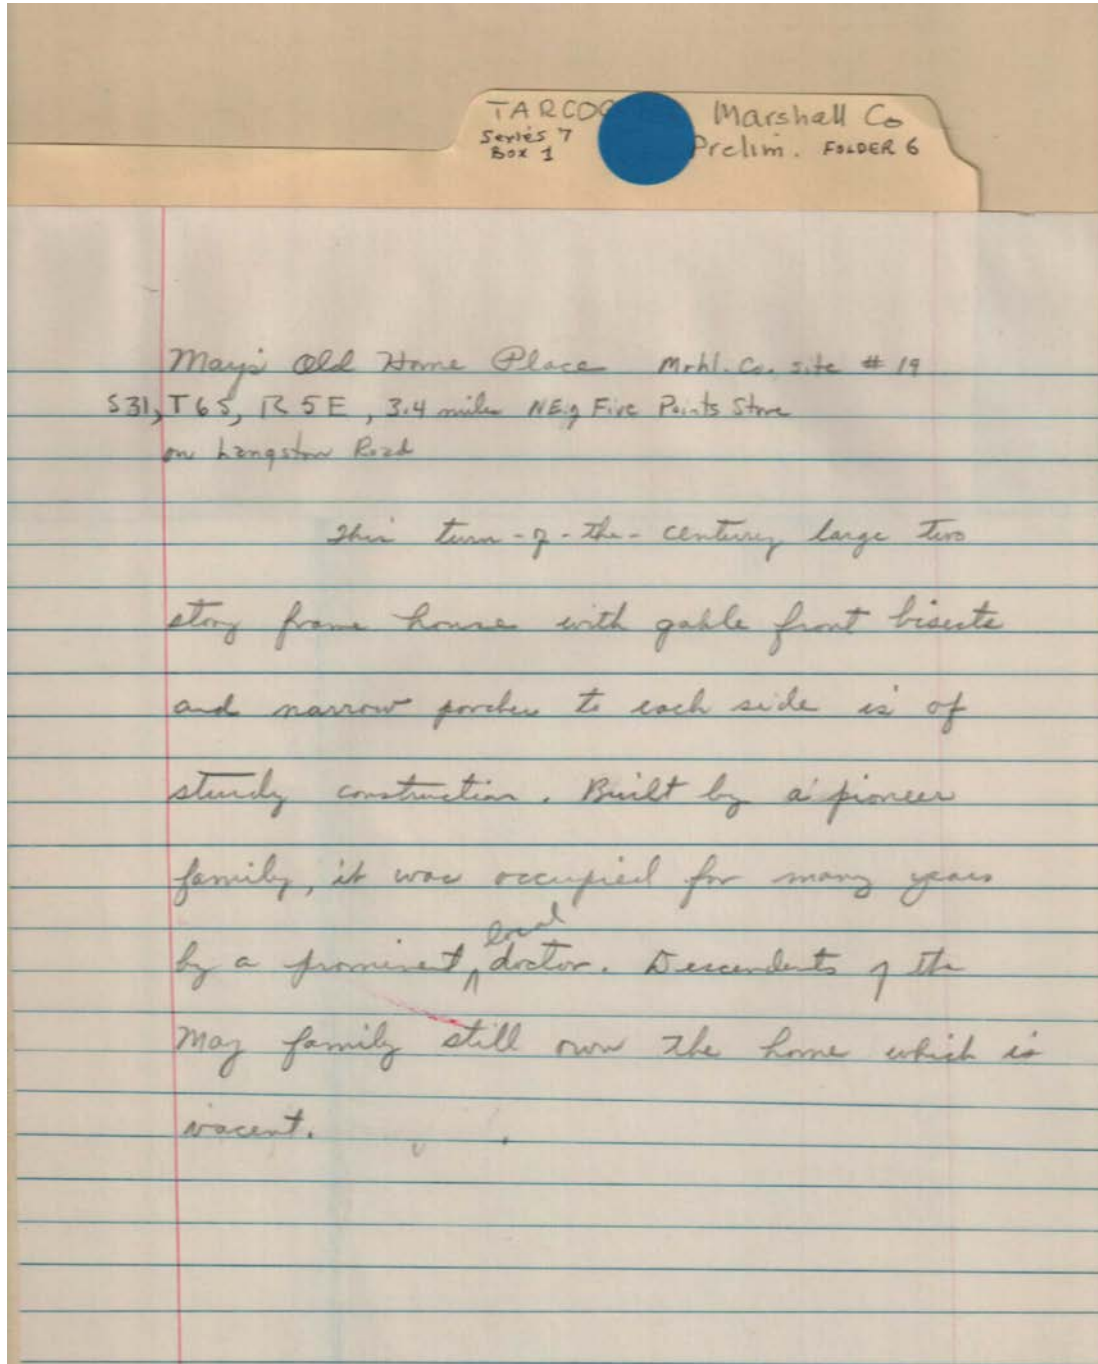 TARCOG Marshall Co
Series 7 Prelim. FOLDER 6
Box 1
May's Old Home Place Mrhl. Co. site # 19
S31, T6S, R5E, 3.4 miles NE of Five Points Store
on Langston Road
This turn-of-the-century large two
story frame house with gable front bisects
and narrow porches to each side is of
sturdy construction. Built by a pioneer
family, it was occupied for many years
by a prominent local doctor. Descendents of the
May family still own the home which is
vacent.